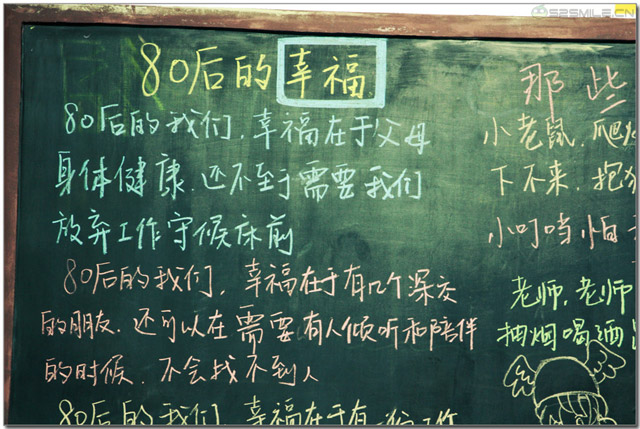 52SMILE.CN
80后的幸福
80后的我们,幸福在于父母
身体健康.还不至于需要我们
放弃工作守候床前
80后的我们,幸福在于有几个深交
的朋友.还可以在需要有人倾听和陪伴
的时候.不会找不到人
80后的我们,幸福在于有一份工作
那些
小老鼠.爬
下不来.抱
小叮当怕
老师.老师
抽烟喝酒